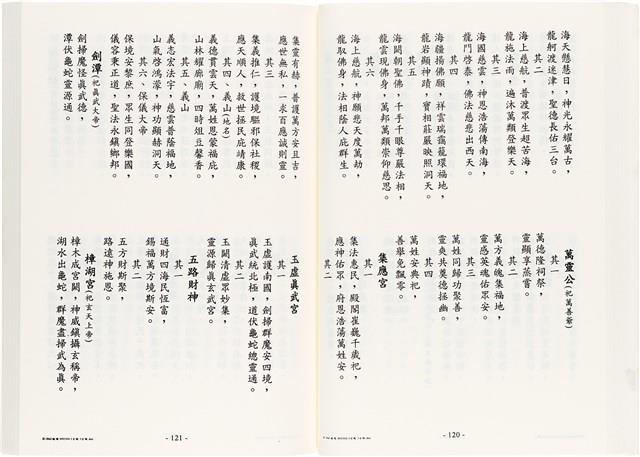 海天懸慧日，神光永耀萬古，
龍舸渡迷津，聖德長佑三台。
其二
海上慈航，普渡眾生超苦海，
龍施法雨，遍沐萬類登樂天。
其三
海國慈雲，神恩浩蕩傳南海，
龍門啓泰，佛法慈悲出西天。
其四
海疆揚佛願，祥雲瑞靄籠環福地，
龍岩顯神蹟，寶相莊嚴映照洞天。
其五
海闊朝聖佛，千手千眼尊嚴法相，
龍雲現佛身，萬邦萬類崇仰慈思。
其六
海上慈航，神願悲天度萬劫，
龍馭佛身，法相蔭人庇群生。
萬靈公(祀萬善爺)
其一
萬德隆祠祭，
靈顯享蒸嘗。
其二
萬方義魄集福地，
靈感英魂佑眾安。
其三
萬姓同歸功聚善，
靈爽共奠德拯幽。
其四
萬姓安典祀，
善舉免飄零。
集應宮
其一
集法惠民，殿閣崔巍千歲祀，
應神佑眾，府恩浩蕩萬姓安。
其二
- 120 -
集靈有赫，普護萬方安且吉，
應世無私，一求百應誠則靈。
其三
集義推仁，護境驅邪保社稷，
應天順人，救世拯民庇靖康。
其四、義山(地名)
義德貫雲天，萬姓恩蒙福庇，
山林耀廊廟，四時俎豆馨香。
其五、義山
義志宏法宇，慈雲普蔭福地，
山氣啓鴻濛，神功顯赫洞天。
其六、保儀大帝
保境安黎庶，眾生同登樂國，
儀容秉正道，聖法永鎮鄉邦。
劍潭(祀眞武大帝)
劍掃魔怪眞武德，
潭伏龜蛇靈源通。
玉虛眞武宮
其一
玉虛護南國，劍掃群魔安四境，
眞武統北極，道伏龜蛇總靈通。
其二
玉闕清虛眾妙集，
靈源歸眞玄武宮。
五路財神
其一
通財四海民恆富，
錫福萬方境斯安。
其二
五方財斯聚，
路遠神施恩。
樟湖宮(祀玄天上帝)
樟木成宮闕，神威鎮攝玄稱帝，
湖水出龜蛇，群魔盡掃武為眞。
- 121 -